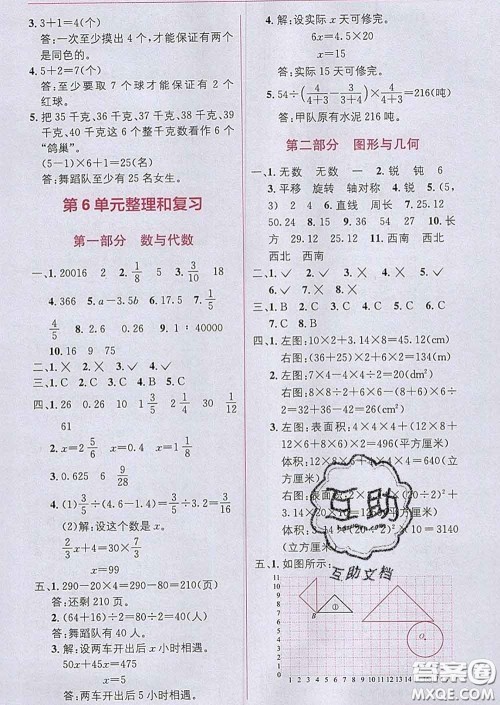 3. 3+1=4(个)
答:一次至少摸出 4 个,才能保证有两个是同色的。
5. 5+2=7(个)
答:至少要取 7 个球才能保证有 2 个红球。
5. 把 35 千克、36 千克、37 千克、38 千克、39
千克、40 千克这 6 个整千克数看作 6 个
“鸽巢”。
(5-1)×6+1=25(名)
答:舞蹈队至少有 25 名女生。
第 6 单元整理和复习
第一部分 数与代数
一、1. 20016 2 2. 1/8 5 3. 3/10 15 18
4. 366 5. a-3.5b 6. 15 7. 1/5
4/5 8. 2.6 0.26 9. 1∶40000
10. 16 9 75 0.75
二、1. × 2. × 3. ✓ 4. ✓
三、1. C 2. C 3. B 4. C 5. C
四、1. 6 10 1 3/5 2 1/4 1 19/40
2. x=2 5/6 x=0.4 x=4.2
3. 0.06 9/28 0.625
(2)解:设这个数是 x。
2/3 x+4=30×7/3
x=99
五、1. 290-20×4=290-80=210(页)
答:还剩 210 页。
2. (64+16)÷2=80÷2=40(人)
答:舞蹈队有 40 人。
3. 解:设两车开出后 x 小时相遇。
50x+45x=475
x=5
答:两车开出后 5 小时相遇。
4. 解:设实际 x 天可修完。
6x=4.5×20
x=15
答:实际 15 天可修完。
5. 54÷(4/(4+3)-3/(4+3))×4/(4+3)=216(吨)
答:甲队原有水泥 216 吨。
第二部分 图形与几何
一、1. 无数 无数 一 2. 锐 钝 6
3. 平移 旋转 轴对称 4. 18.84
5. 24 2 6. 直线 周长 7. 15 125
50.24 8. 15 9. 27 18 10. 5 7
长方 29. 12 25.12 11. 西南 西北
西北 西南
二、1. ✓ 2. ✓ 3. × 4. × 5. ×
三、1. B 2. C 3. C 4. B 5. A
四、1. 左图:10×2+3.14×8=45.12(cm)
右图:(36+25)×2=61×2=122(cm)
2. 左图:4×7-4×2÷2=24(dm²)
右图:8×8÷2+6×6-(8+6)×6÷
2=32+36-42=26(dm²)
3. 左图:表面积:4×4×4+(12×8+
12×4+8×4)×2=496(平方厘米)
体积:12×8×4+4×4=640(立方
厘米)
五、1. 如图所示:
11
10
9
8
7
6
5
4
3
2
1
0 1 2 3 4 5 6 7 8 9 10 11 12 13 14
①
B
O
互助
互助文档
答案圈
MXQE.COM